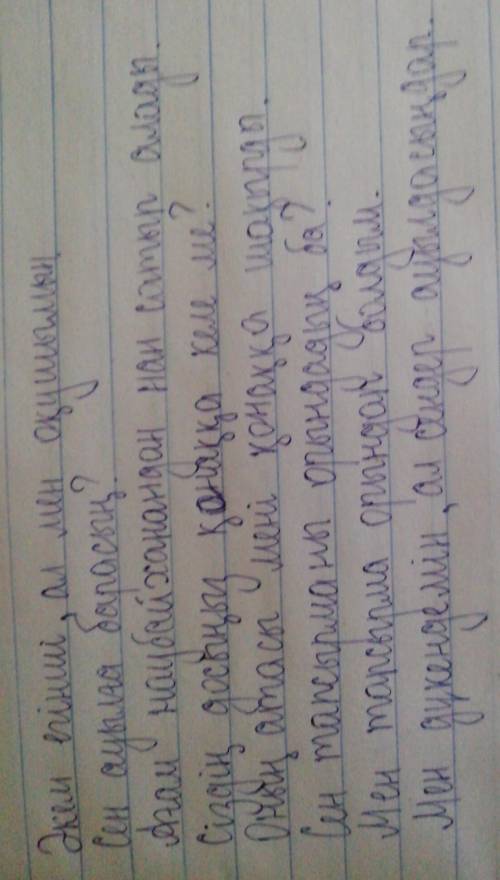 Әкем егінші, ал мен оқушымын.
Сен ауылға барасың?
Ағам наубайханандан нан сатып алады.
Сіздің досыңыз қонаққа келе ме?
Оның атасы мені қонаққа шақырды.
Сен тапсырманы орындадың ба?
Мен тапсырма орындап болдым.
Мен дүкендемін, ал сендер ауылдасыңдар.